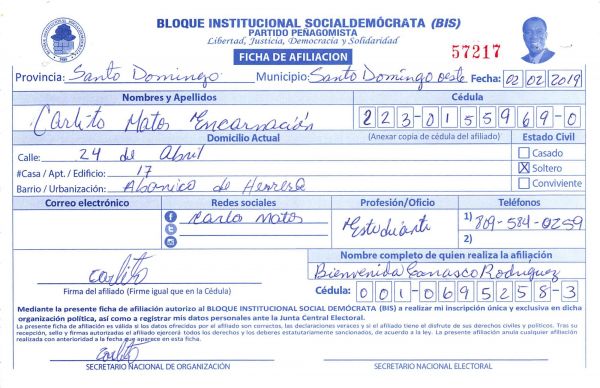 BLOQUE INSTITUCIONAL SOCIALDEMÓCRATA (BIS)
PARTIDO PEÑAGOMISTA
Libertad, Justicia, Democracia y Solidaridad
FICHA DE AFILIACION
57217
Provincia: Santo Domingo Municipio: Santo Domingo oeste Fecha: 02 02 2019
Nombres y Apellidos Cédula
Carlito Matos Encarnación 223-0155969-0
Domicilio Actual (Anexar copia de cédula del afiliado) Estado Civil
Calle: 24 de Abril Casado
#Casa / Apt. / Edificio: 17 X Soltero
Barrio / Urbanización: Abanico de Herrera Conviviente
Correo electrónico Redes sociales Profesión/Oficio Teléfonos
Carlo Matos Estudiante 1) 809-584-0259
2)
Nombre completo de quien realiza la afiliación
carlito Bienvenida Carrasco Rodriguez
Firma del afiliado (Firme igual que en la Cédula) Cédula: 001-0695258-3
Mediante la presente ficha de afiliación autorizo al BLOQUE INSTITUCIONAL SOCIAL DEMÓCRATA (BIS) a realizar mi inscripción única y exclusiva en dicha
organización política, así como a registrar mis datos personales ante la Junta Central Electoral.
La presente ficha de afiliación es válida si los datos ofrecidos por el afiliado son correctos, las declaraciones veraces y si el afiliado tiene el disfrute de sus derechos civiles y políticos. Tras su
recepción, sello y firmas autorizadas el afiliado ejercerá todos los derechos y los deberes estatutariamente sancionados, de acuerdo a la ley. La presente afiliación anula cualquier afiliación
realizada con anterioridad a la fecha que aparece en esta ficha.
carlito
SECRETARIO NACIONAL DE ORGANIZACIÓN SECRETARIO NACIONAL ELECTORAL